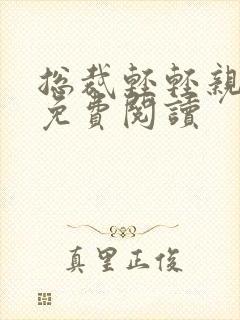 總裁輕輕親
免費閱讀
真里正俊